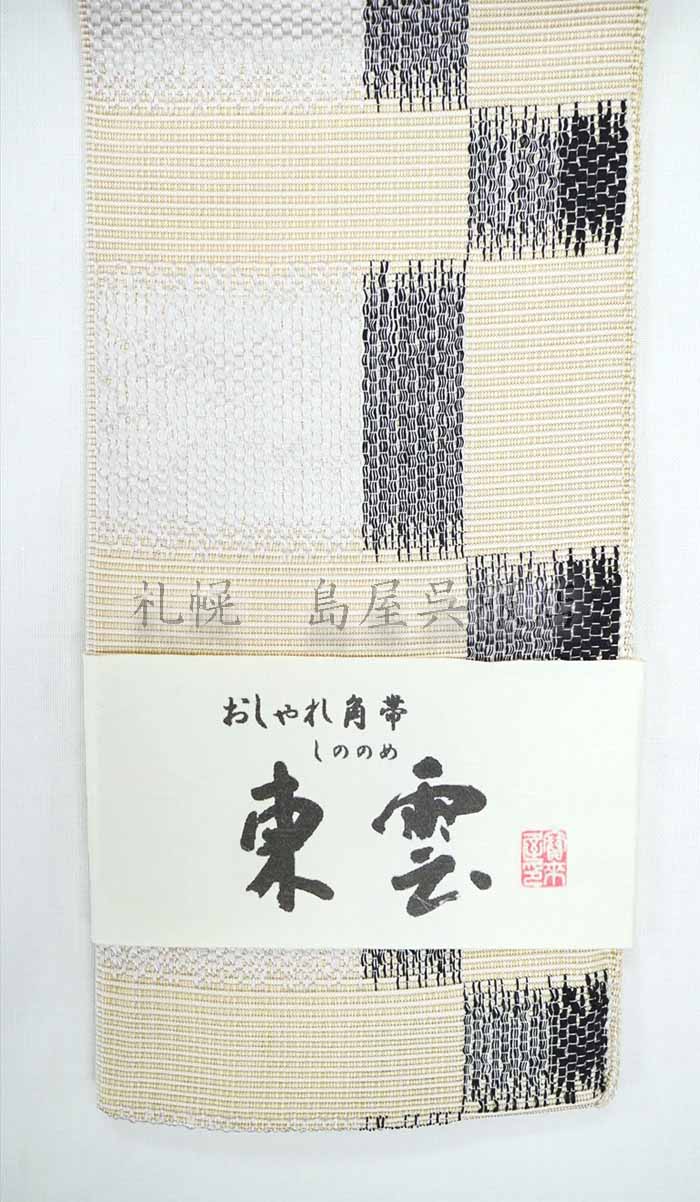 札幌 島屋呉服店
おしゃれ角帯
しののめ
東雲